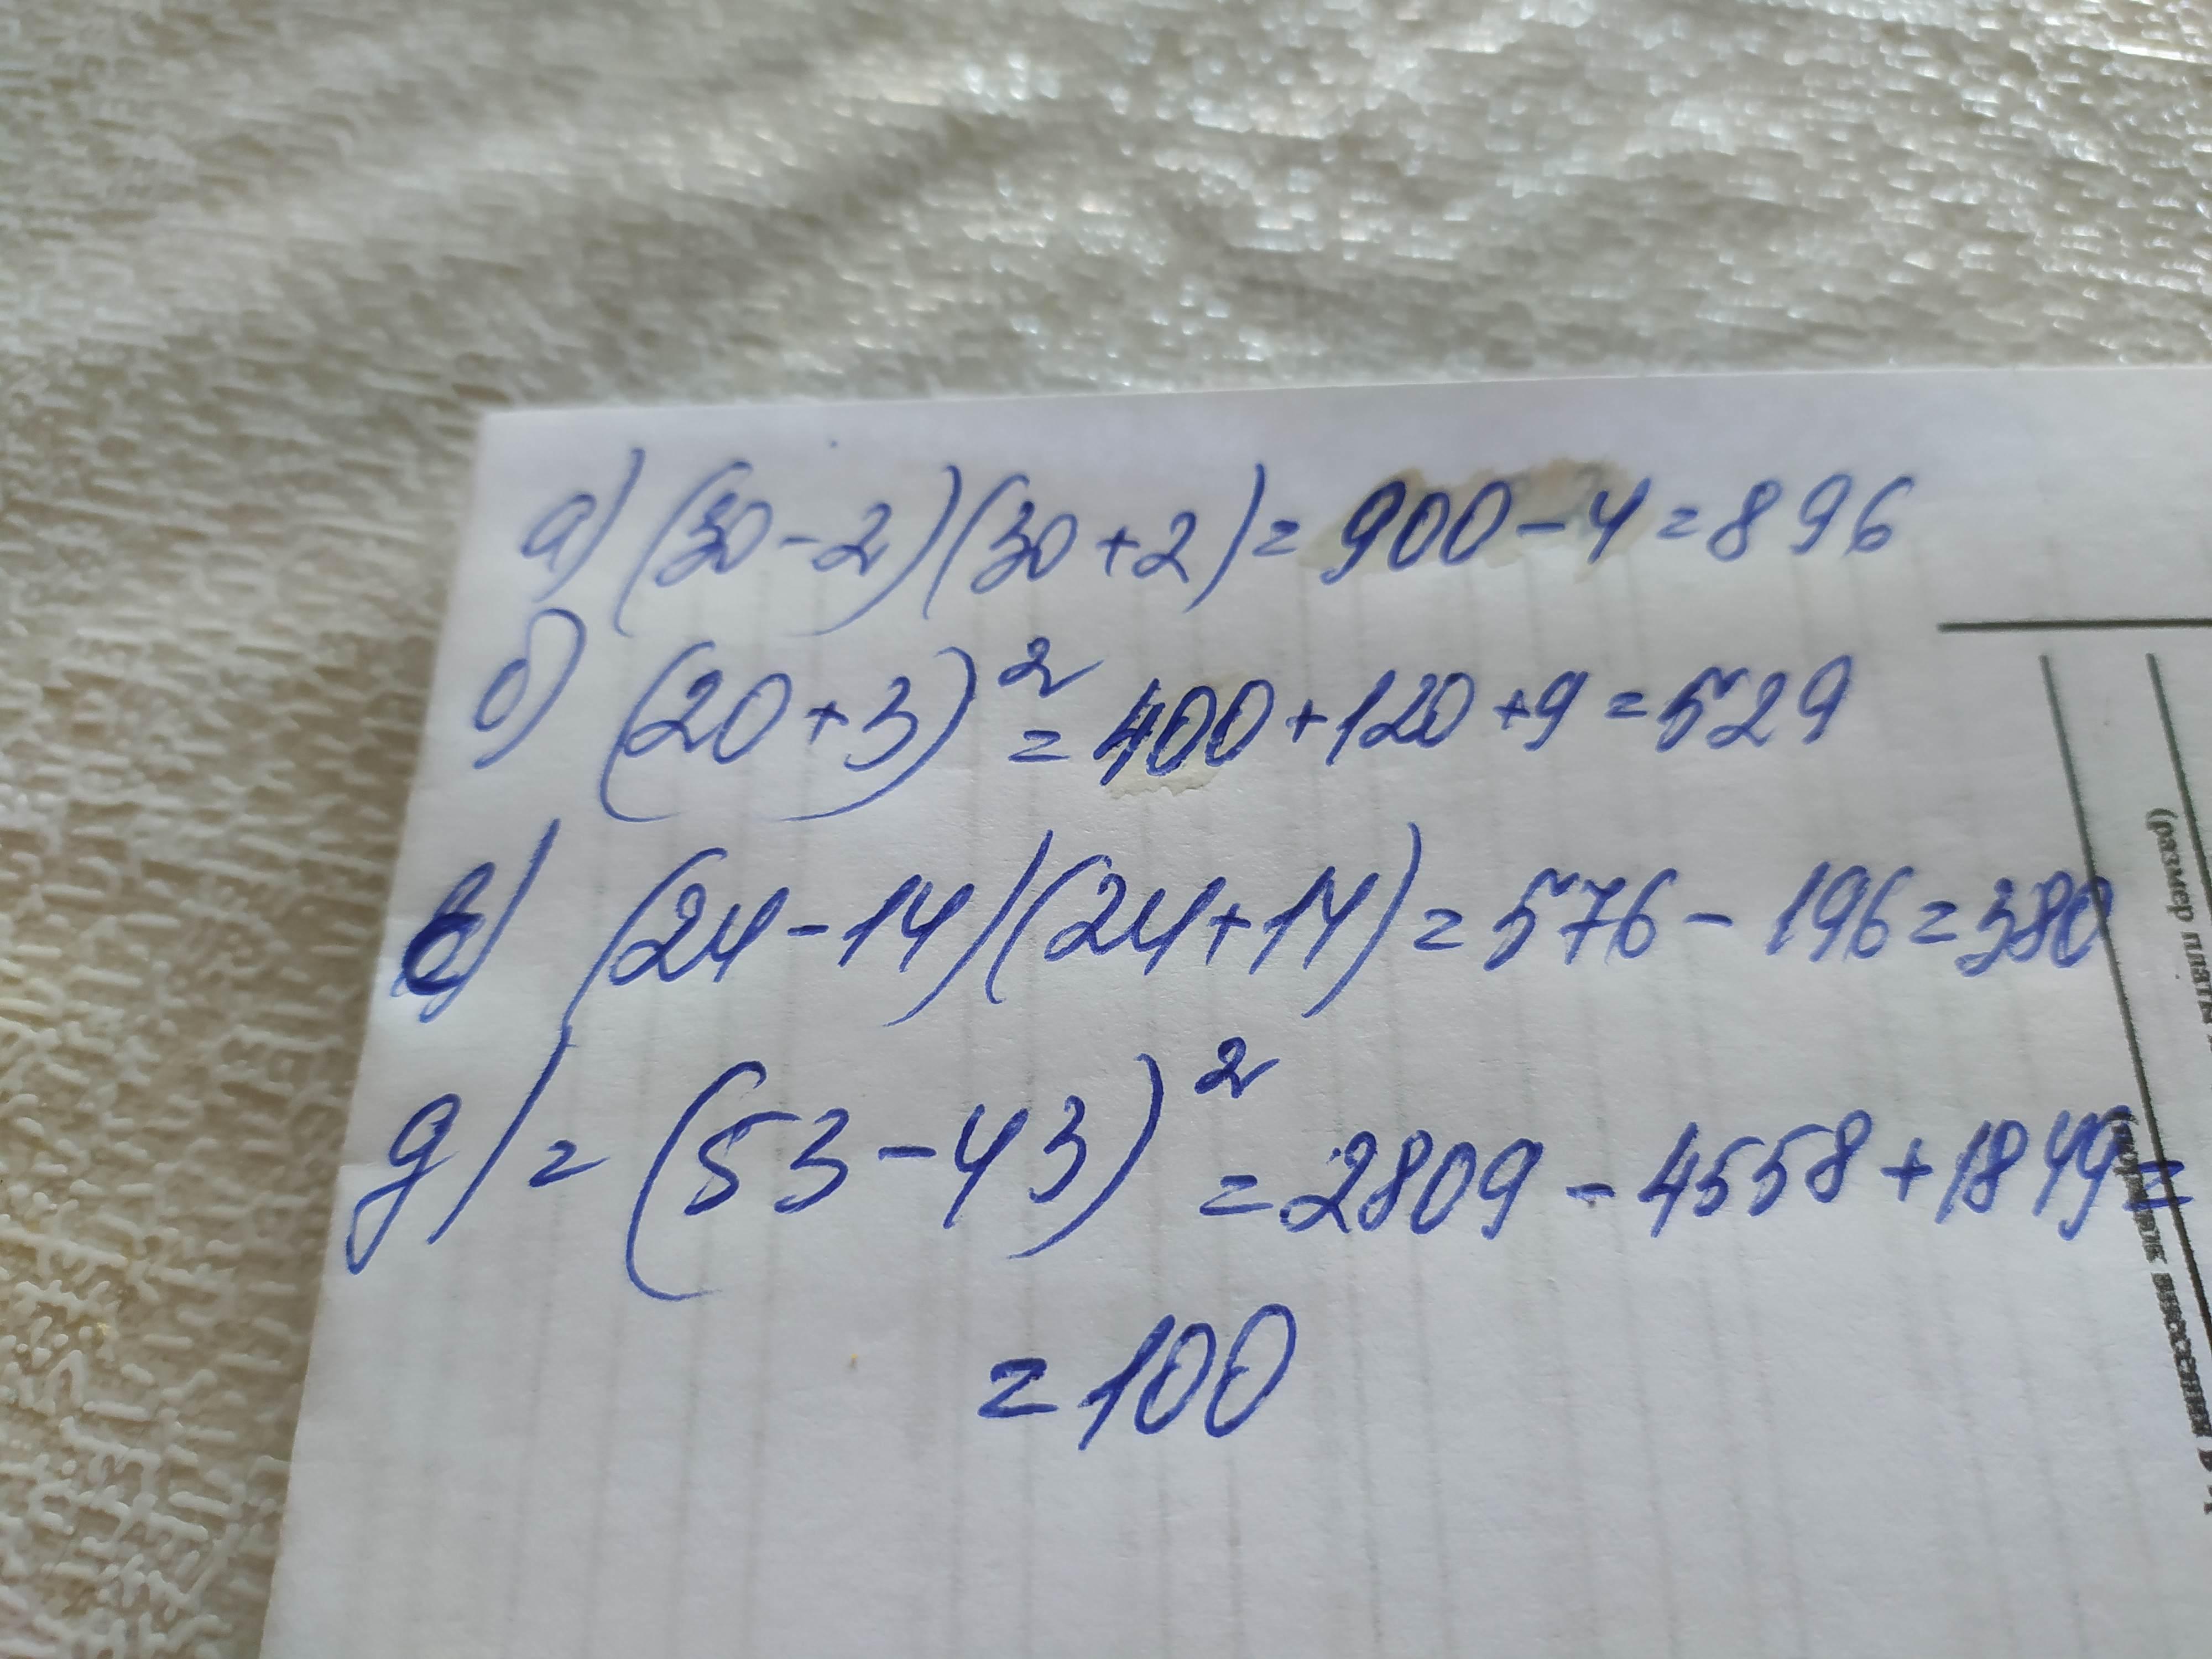 а) (30-2)(30+2)=900-4=896
б) (20+3)²=400+120+9=529
в) (24-14)(24+14)=576-196=380
д) =(53-43)²=2809-4558+1849=
=100
(размер платы
внесения в